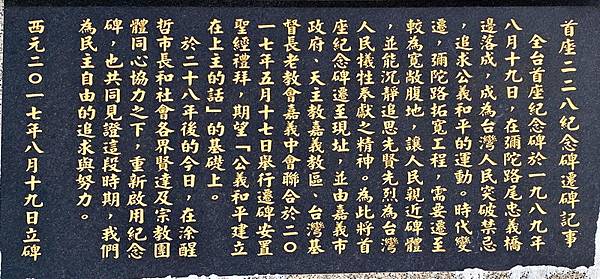 首座二二八紀念碑遷碑記事
全台首座紀念碑於一九八九年
八月十九日，在彌陀路尾忠義橋
邊落成，成為台灣人民突破禁忌
，追求公義和平的運動。時代變
遷，彌陀路拓寬工程，需要遷至
較為寬敞腹地，讓人民親近碑體
，並能沉靜追思先賢先烈為台灣
人民犧牲奉獻之精神。為此將首
座紀念碑遷至現址，並由嘉義市
政府、天主教嘉義教區、台灣基
督長老教會嘉義中會聯合於二〇
一七年五月十七日舉行遷碑安置
聖經禮拜，期望「公義和平建立
在上主的話」的基礎上。
於二十八年後的今日，在涂醒
哲市長和社會各界賢達及宗教團
體同心協力之下，重新啟用紀念
碑，也共同見證這段時期，我們
為民主自由的追求與努力。
西元二〇一七年八月十九日立碑